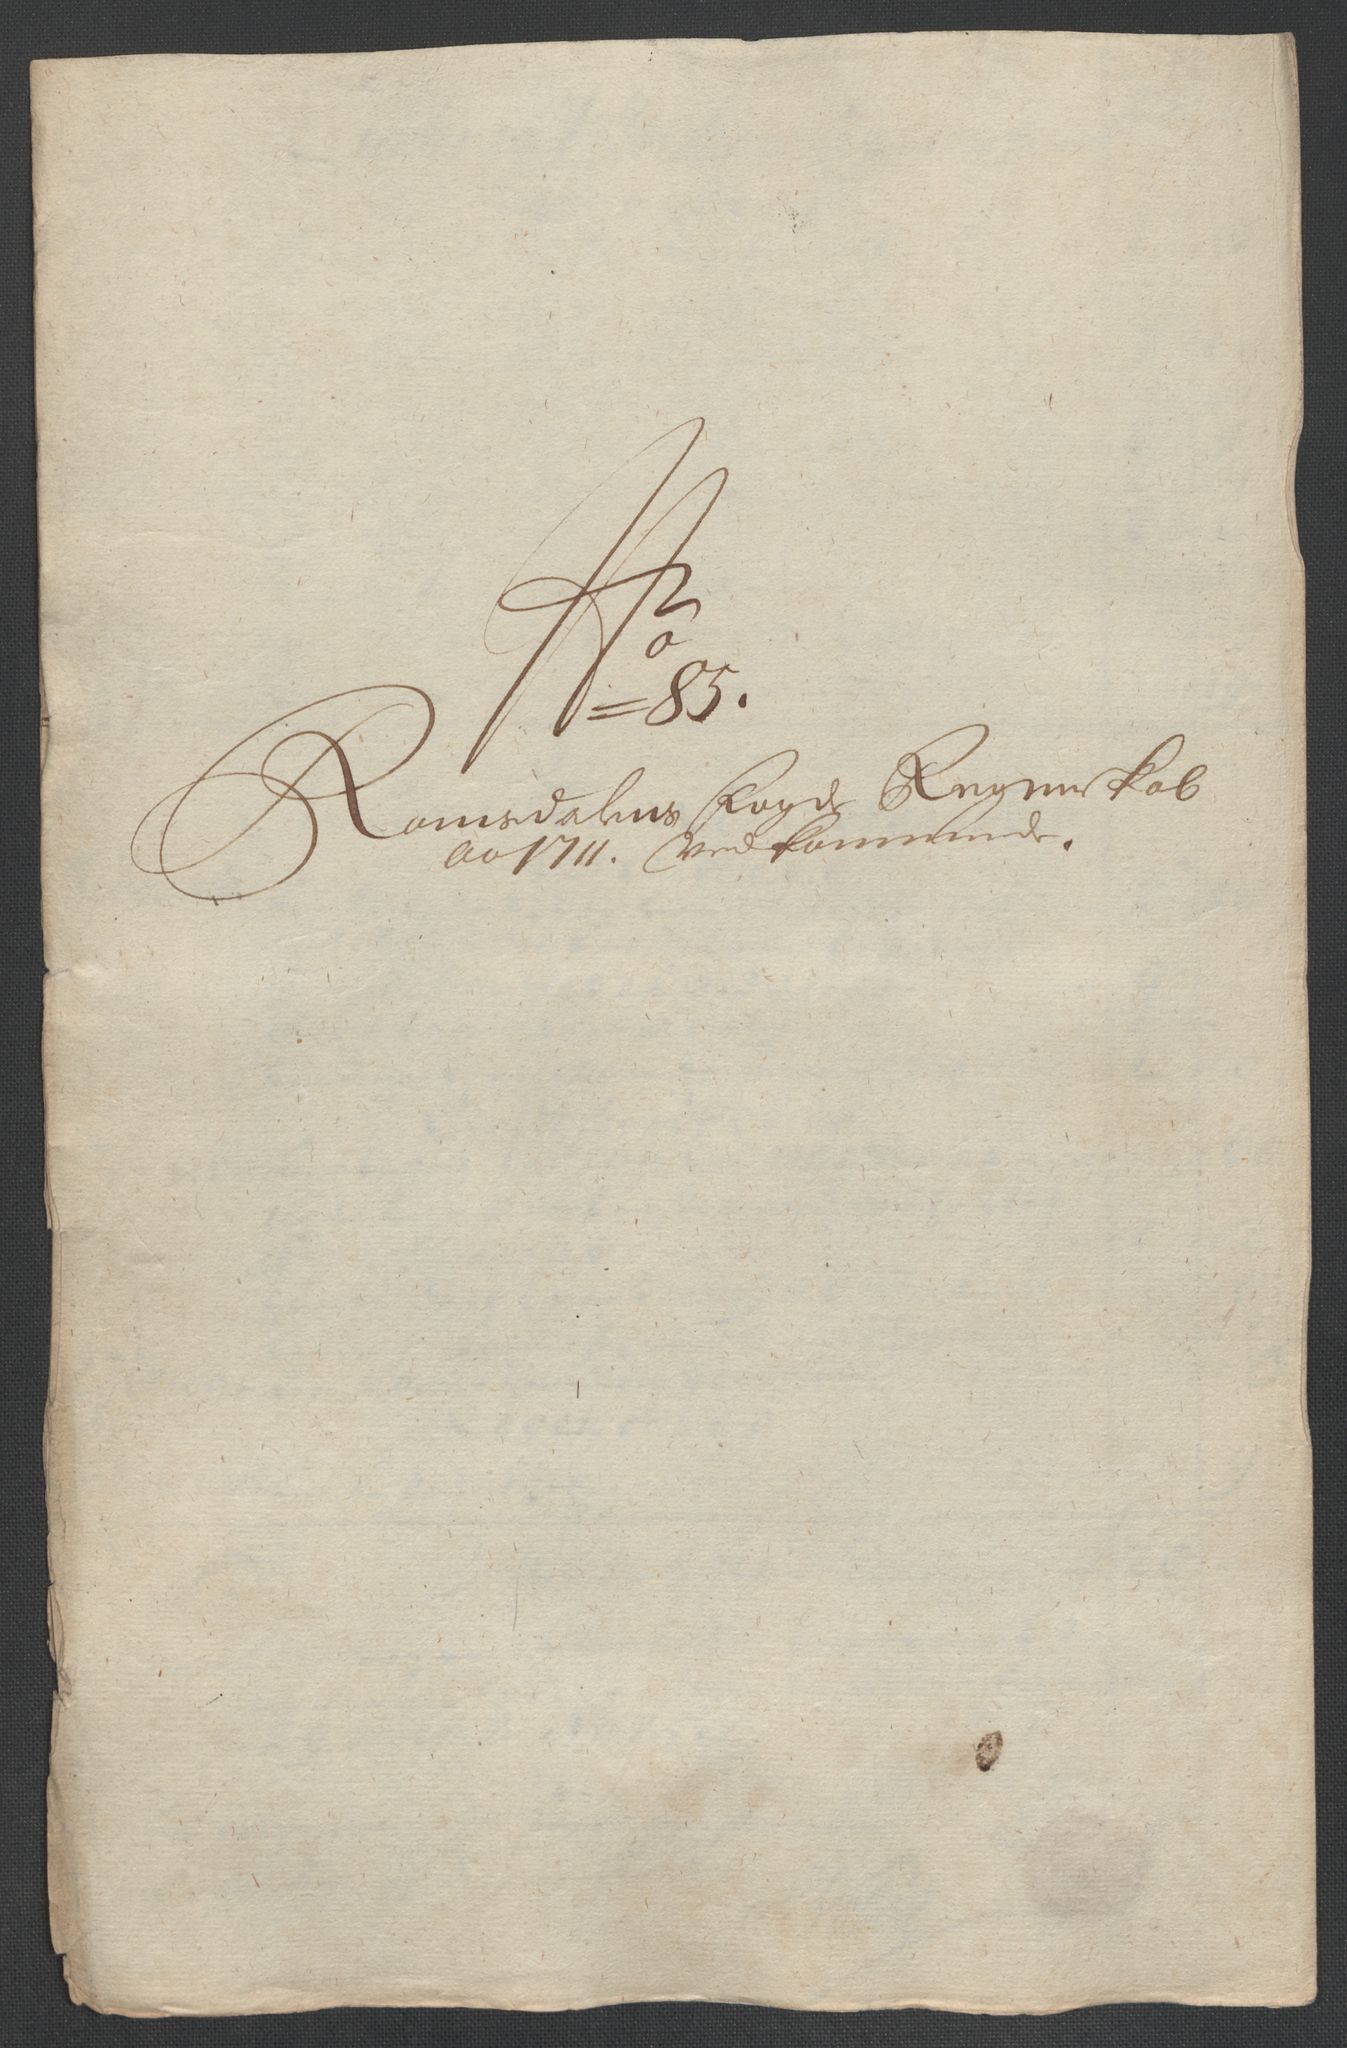 No
=85.
Romsdalens Fogds Regnenskab
Ao 1711. Vedkommende.